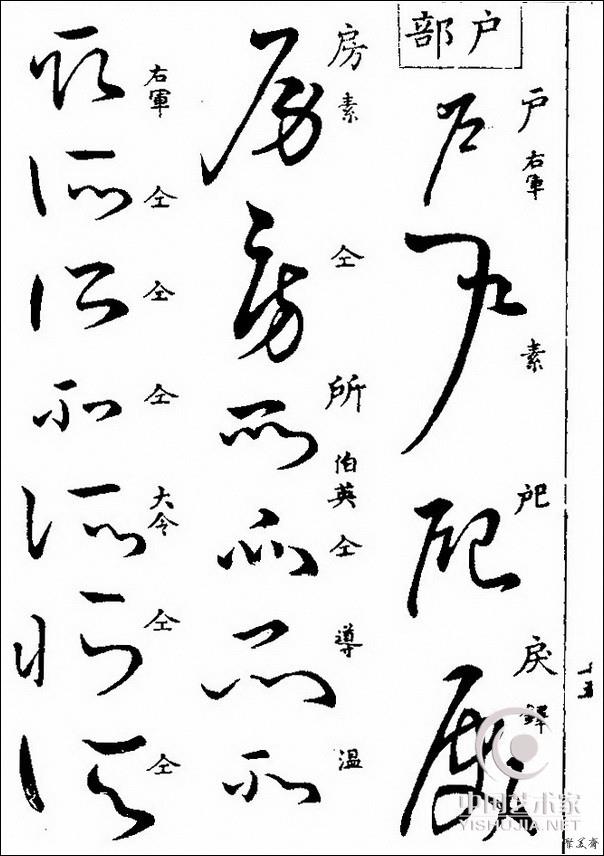 戶部
戶 右軍
素
戹
戾 鐸
房 素
仝
所 伯英
仝
導
温
右軍
仝
仝
仝
大令
仝
仝
十五
中国艺术家
YISHUJIA.NET
聚美斋